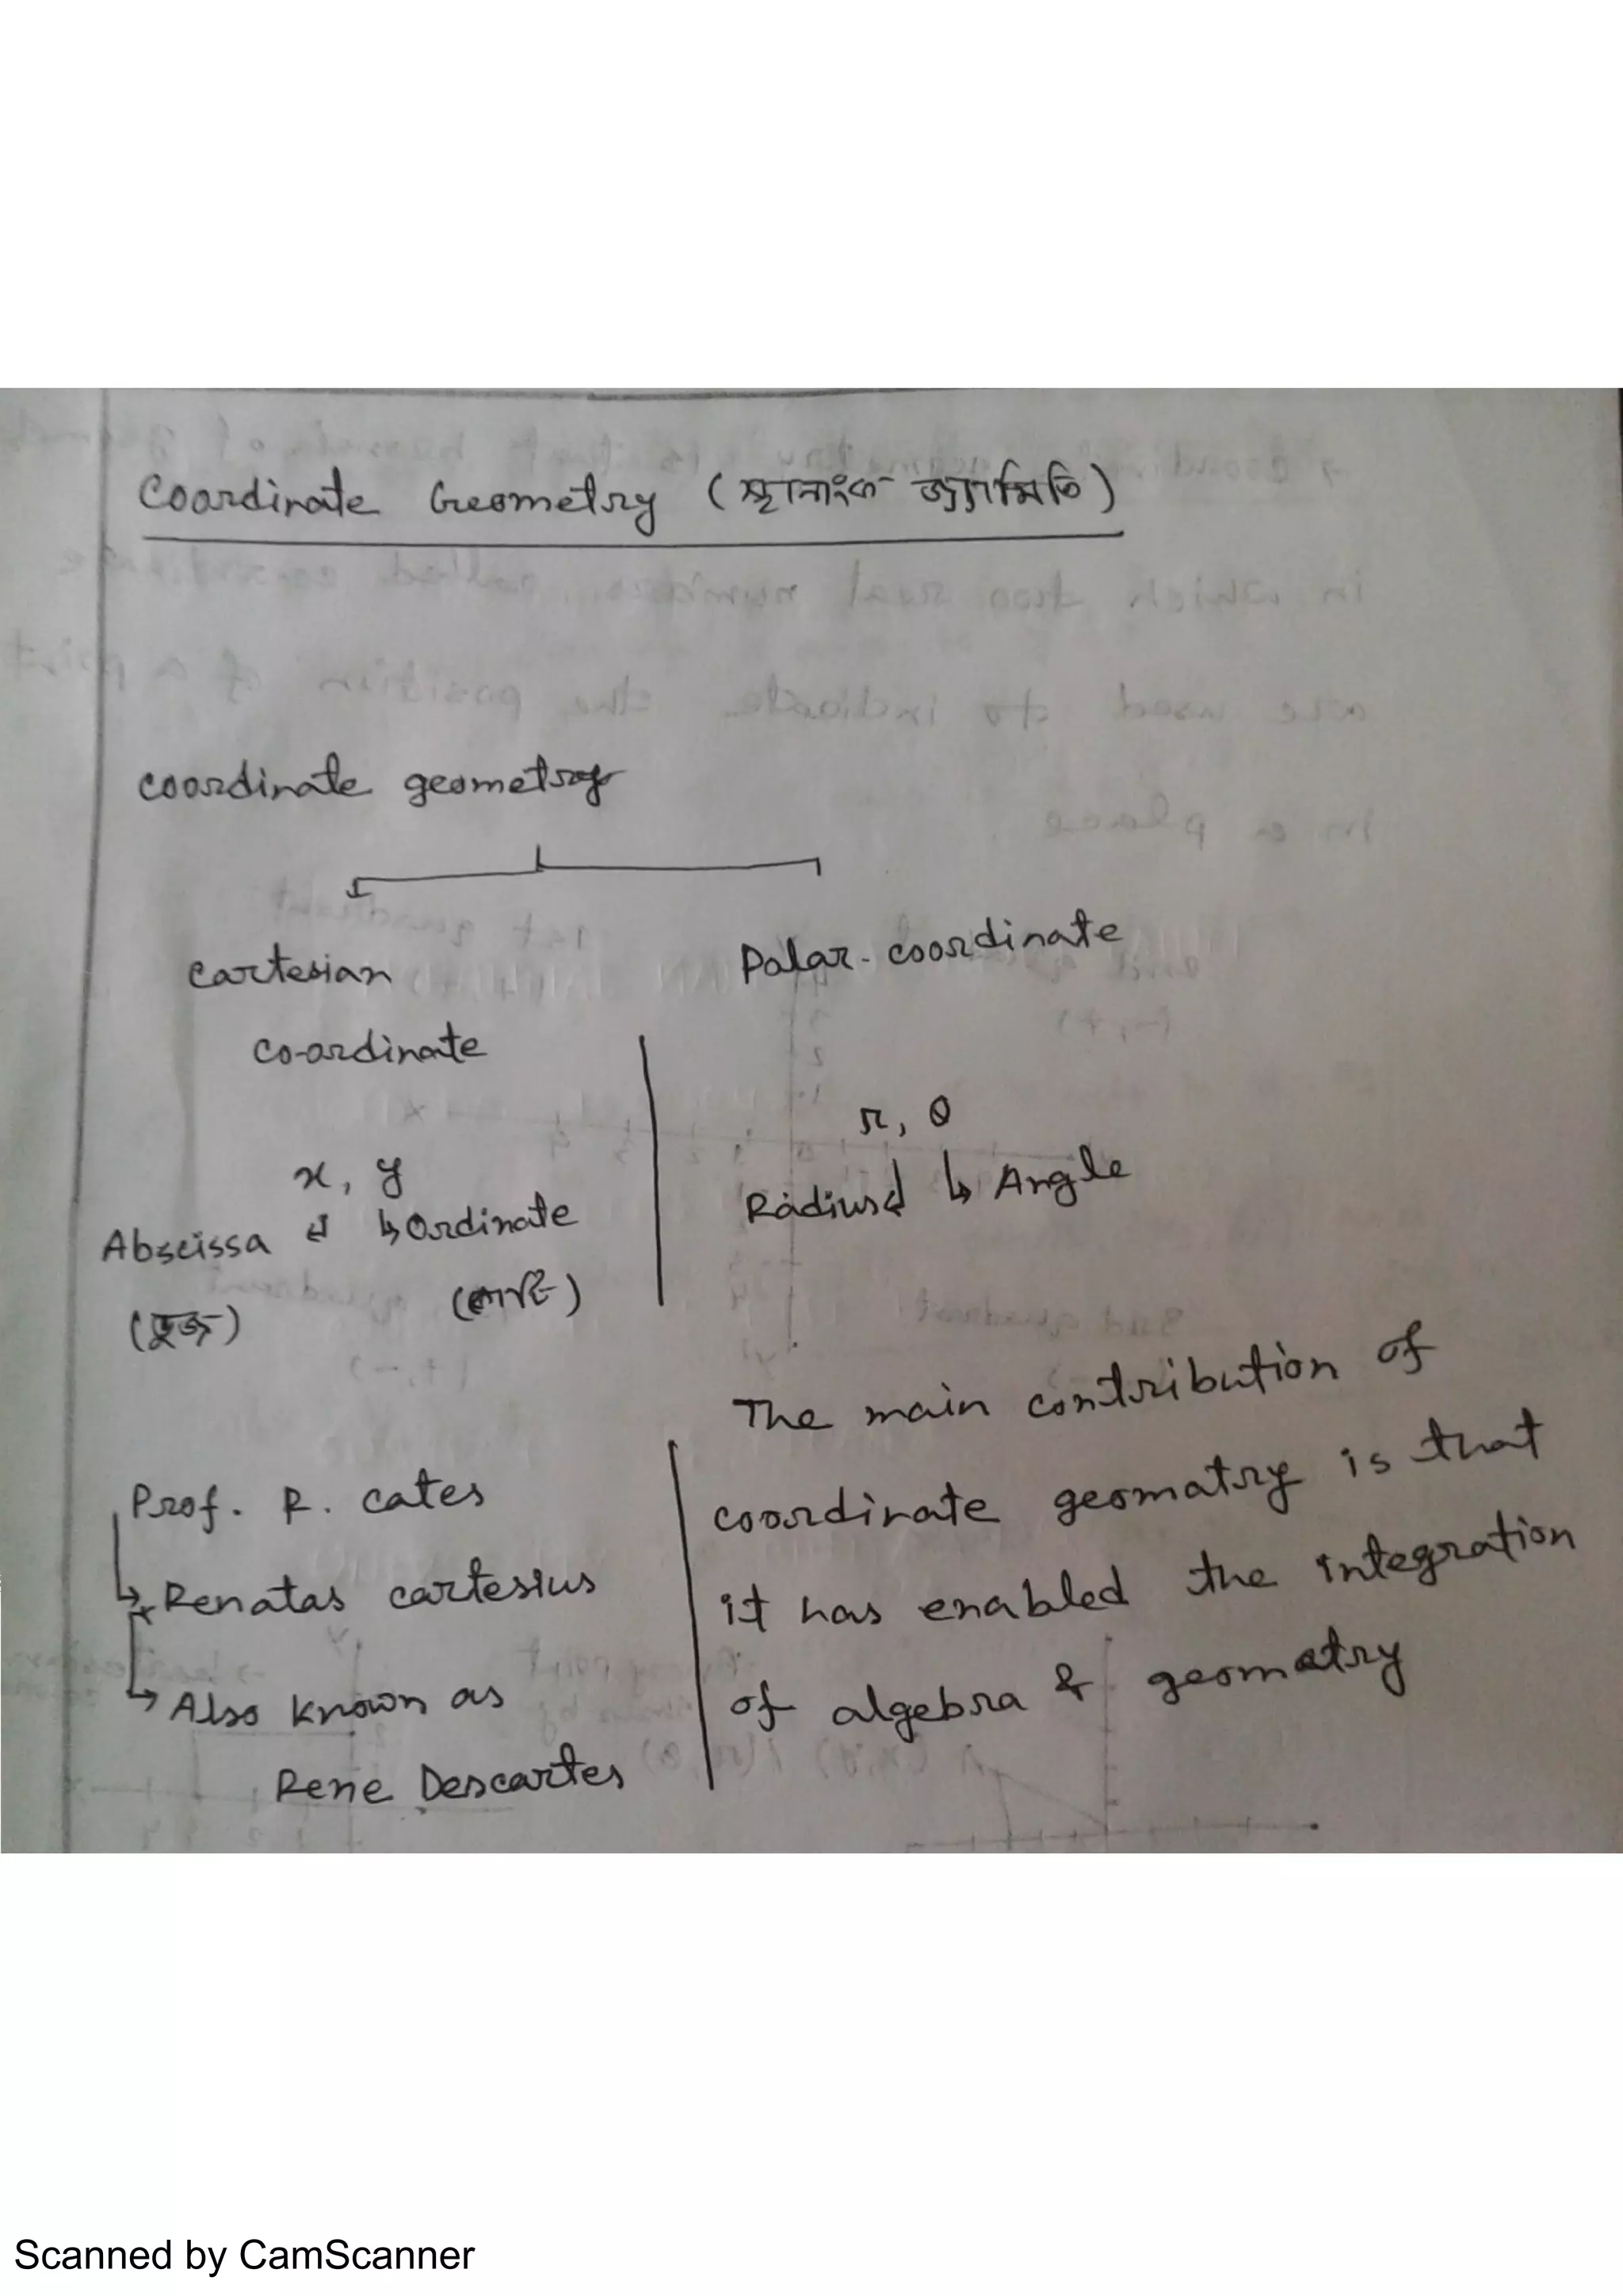 Coordinate Geometry (স্থানাংক জ্যামিতি)
coordinate geometry
cartesian
co-ordinate
Polar - coordinate
x, y
Abscissa ↲ ↳ Ordinate
(ভুজ) (কোটি)
r, θ
Radius ↲ ↳ Angle
Prof. R. cates
↳ Renatas cartesius
↳ Also known as
Rene Descartes
The main contribution of
coordinate geomatry is that
it has enabled the integration
of algebra & geometry
Scanned by CamScanner